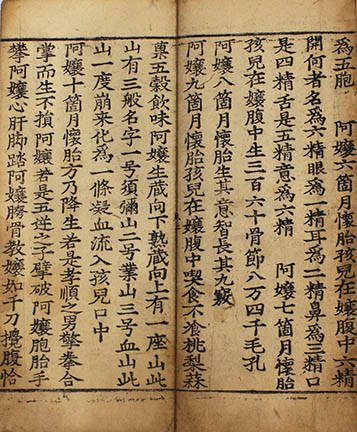 為五胞 阿孃六箇月懷胎孩兒在孃腹中六精
開何者名為六精眼為一精耳為二精鼻為三精口
是四精舌是五精意為六精 阿孃七箇月懷胎
孩兒在孃腹中生三百六十骨節八万四千毛孔
阿孃八箇月懷胎生其意智長其九竅
阿孃九箇月懷胎孩兒在孃腹中喫食不飡桃梨蒜
菓五穀飲味阿孃生藏向下熟藏向上有一座山此
山有三般名字一号須彌山二号業山三号血山此
山一度崩來化為一條凝血流入孩兒口中
阿孃十箇月懷胎方乃降生若是孝順之男擎拳合
掌而生不損阿孃若是五逆之子擘破阿孃胞胎手
攀阿孃心肝脚踏阿孃胯骨教孃如千刀攪腹恰